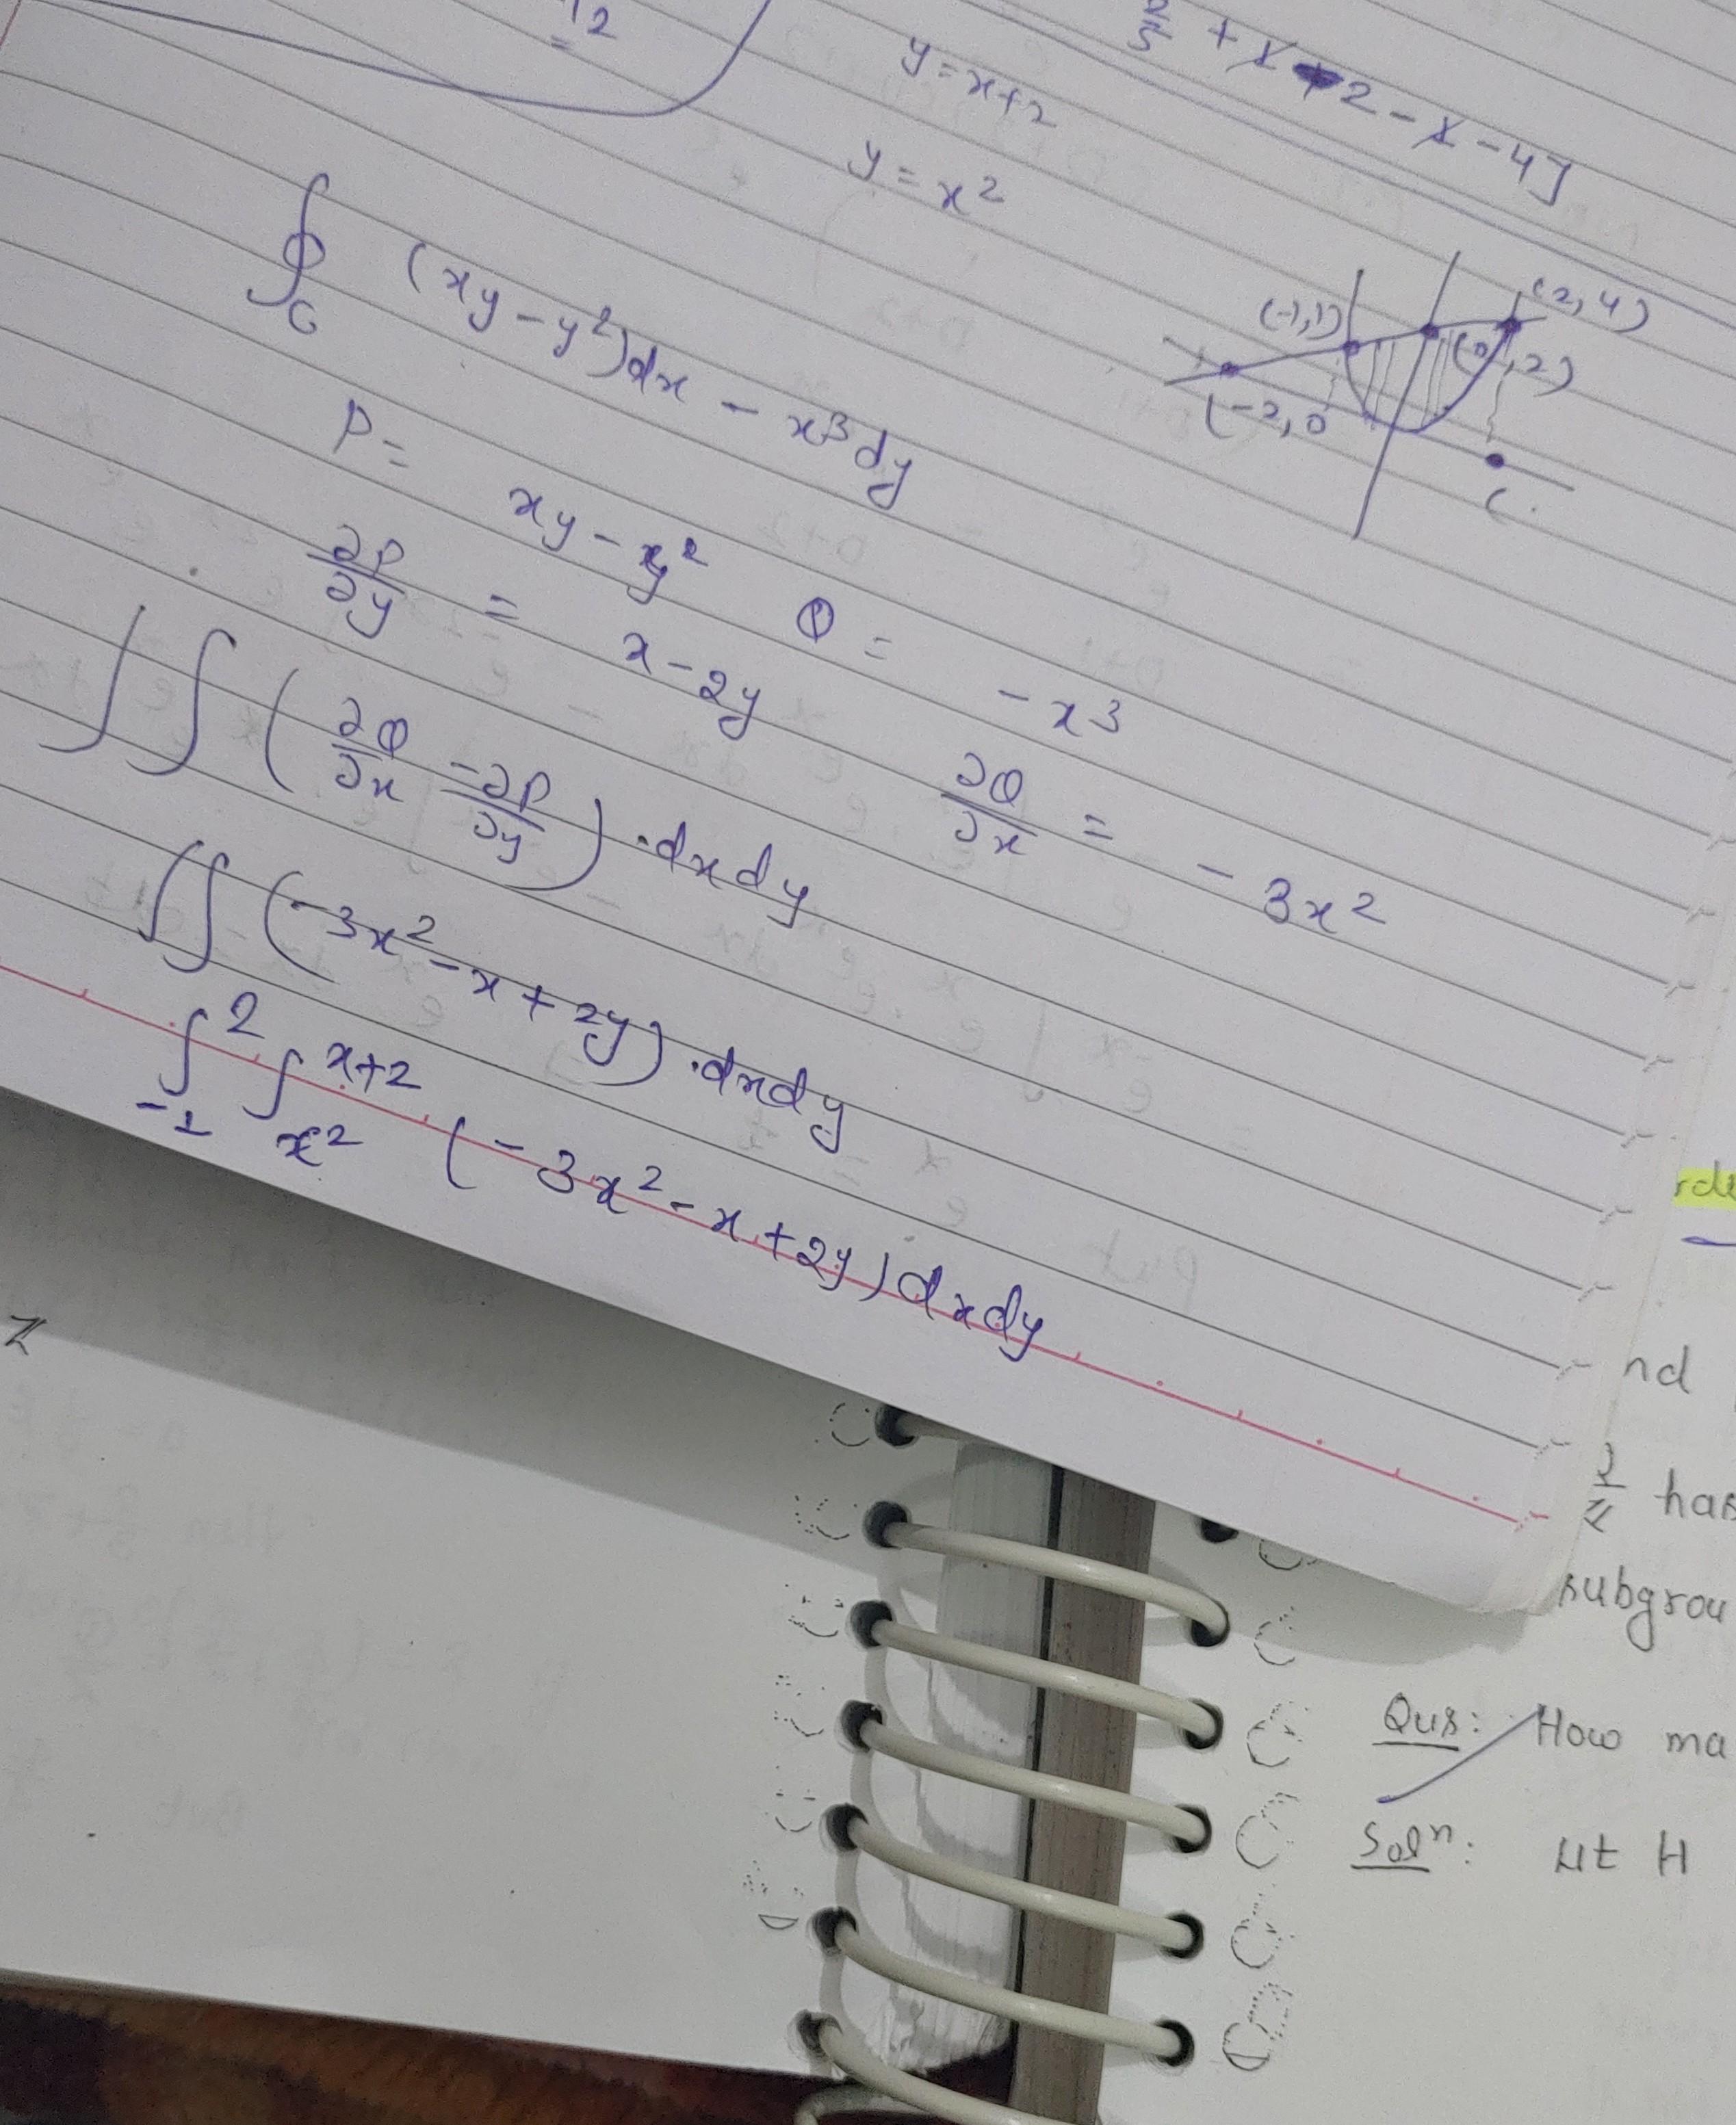 12
2/5 + x + 2 - x - 4]
y = x+2
y = x²
∮_C (xy - y²)dx - x³dy
(-1,1) (2,4)
(0,2)
(-2,0
P = xy - y² Q = -x³
∂P/∂y = x - 2y ∂Q/∂x = -3x²
∫∫ (∂Q/∂x - ∂P/∂y) · dxdy
∫∫ (-3x² - x + 2y) · dxdy
∫_{-1}^{2} ∫_{x²}^{x+2} (-3x² - x + 2y) dxdy
nd
has
subgrou
Qus: How ma
Solⁿ: let H